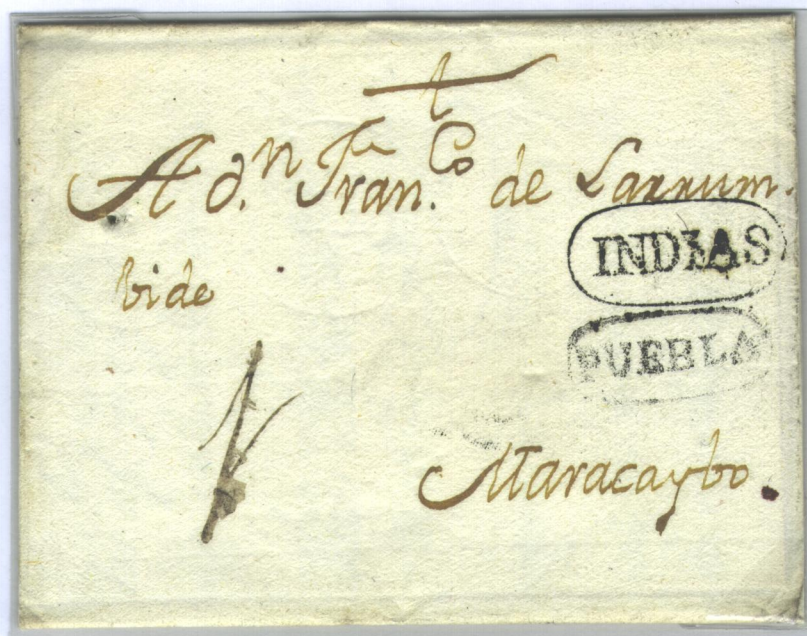 A d.n Fran.co de Larrum.
bide
INDIAS
PUEBLA
Maracaybo.